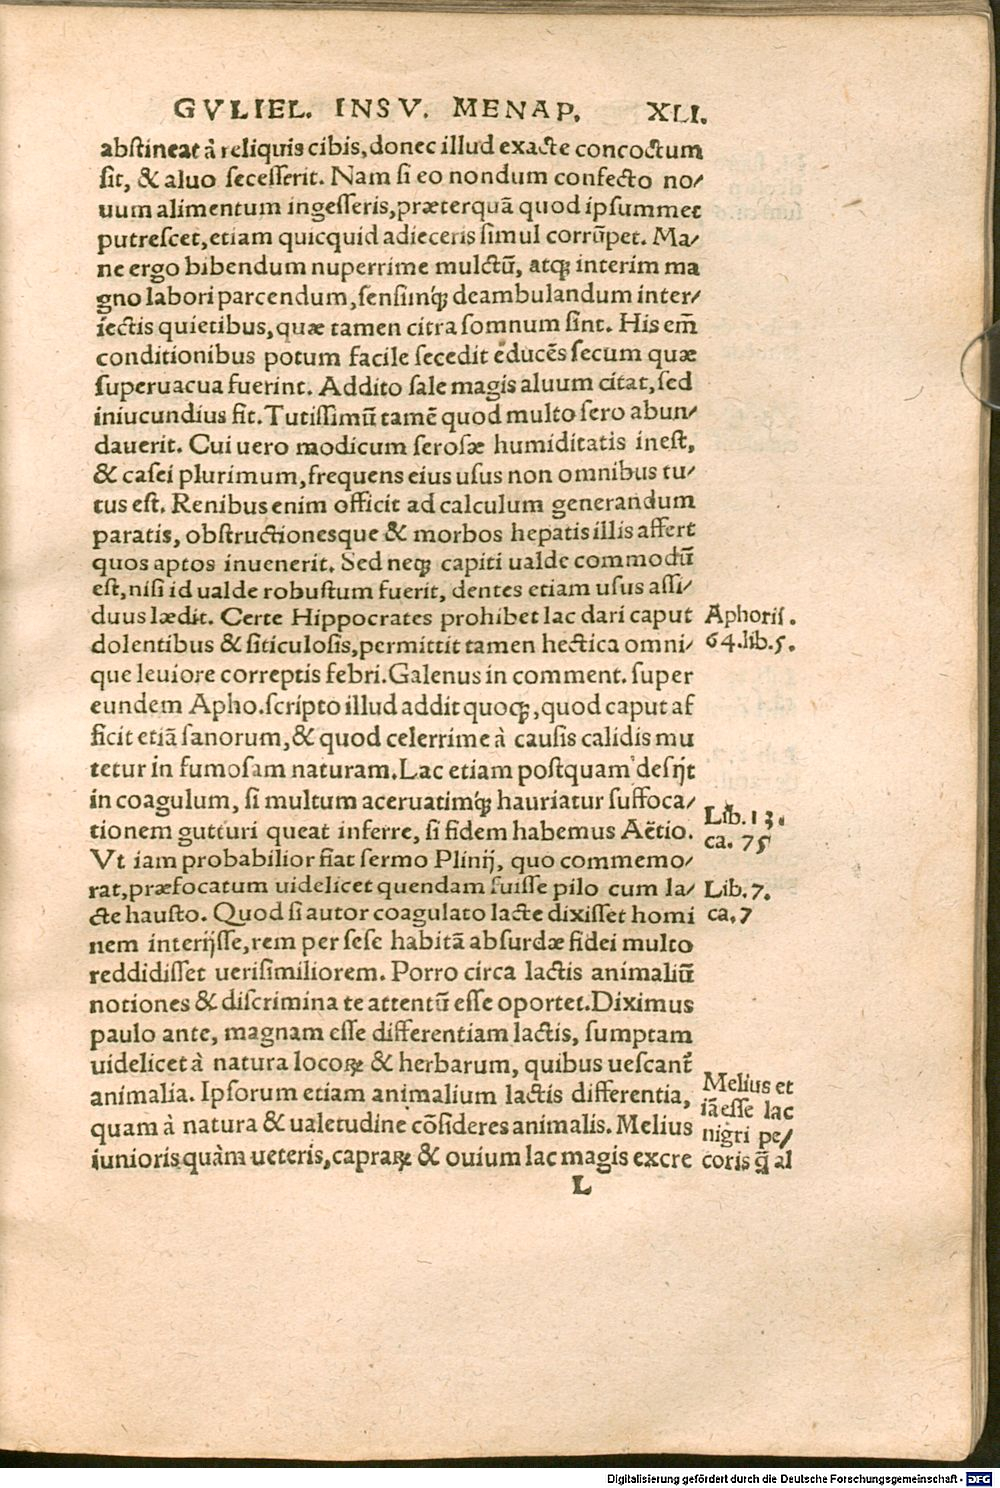 GVLIEL. INSV. MENAP. XLI.
abstineat à reliquis cibis, donec illud exacte concoctum
sit, & aluo secesserit. Nam si eo nondum confecto no/
uum alimentum ingesseris, præterquã quod ipsummet
putrescet, etiam quicquid adieceris simul corrũpet. Ma/
ne ergo bibendum nuperrime mulctũ, atqꝫ interim ma
gno labori parcendum, sensimqꝫ deambulandum inter/
iectis quietibus, quæ tamen citra somnum sint. His em̃
conditionibus potum facile secedit educẽs secum quæ
superuacua fuerint. Addito sale magis aluum citat, sed
iniucundius fit. Tutissimũ tamẽ quod multo sero abun/
dauerit. Cui uero modicum serosæ humiditatis inest,
& casei plurimum, frequens eius usus non omnibus tu/
tus est. Renibus enim officit ad calculum generandum
paratis, obstructionesque & morbos hepatis illis affert
quos aptos inuenerit. Sed neqꝫ capiti ualde commodũ
est, nisi id ualde robustum fuerit, dentes etiam usus assi/
duus lædit. Certe Hippocrates prohibet lac dari caput
dolentibus & siticulosis, permittit tamen hectica omni/
que leuiore correptis febri. Galenus in comment. super
eundem Apho. scripto illud addit quoqꝫ, quod caput af
ficit etiã sanorum, & quod celerrime à causis calidis mu
tetur in fumosam naturam. Lac etiam postquam desijt
in coagulum, si multum aceruatimqꝫ hauriatur suffoca/
tionem gutturi queat inferre, si fidem habemus Aëtio.
Vt iam probabilior fiat sermo Plinij, quo commemo/
rat, præfocatum uidelicet quendam fuisse pilo cum la/
cte hausto. Quod si autor coagulato lacte dixisset homi
nem interijsse, rem per sese habitã absurdæ fidei multo
reddidisset uerisimiliorem. Porro circa lactis animaliũ
notiones & discrimina te attentũ esse oportet. Diximus
paulo ante, magnam esse differentiam lactis, sumptam
uidelicet à natura locoꝝ & herbarum, quibus uescant̃
animalia. Ipsorum etiam animalium lactis differentia,
quam à natura & ualetudine cõsideres animalis. Melius
iunioris quàm ueteris, capraꝝ & ouium lac magis excre
L
Aphoris.
64. lib. 5.
Lib. 13.
ca. 75
Lib. 7.
ca. 7
Melius et
iã esse lac
nigri pe/
coris q̃ al
Digitalisierung gefördert durch die Deutsche Forschungsgemeinschaft - DFG